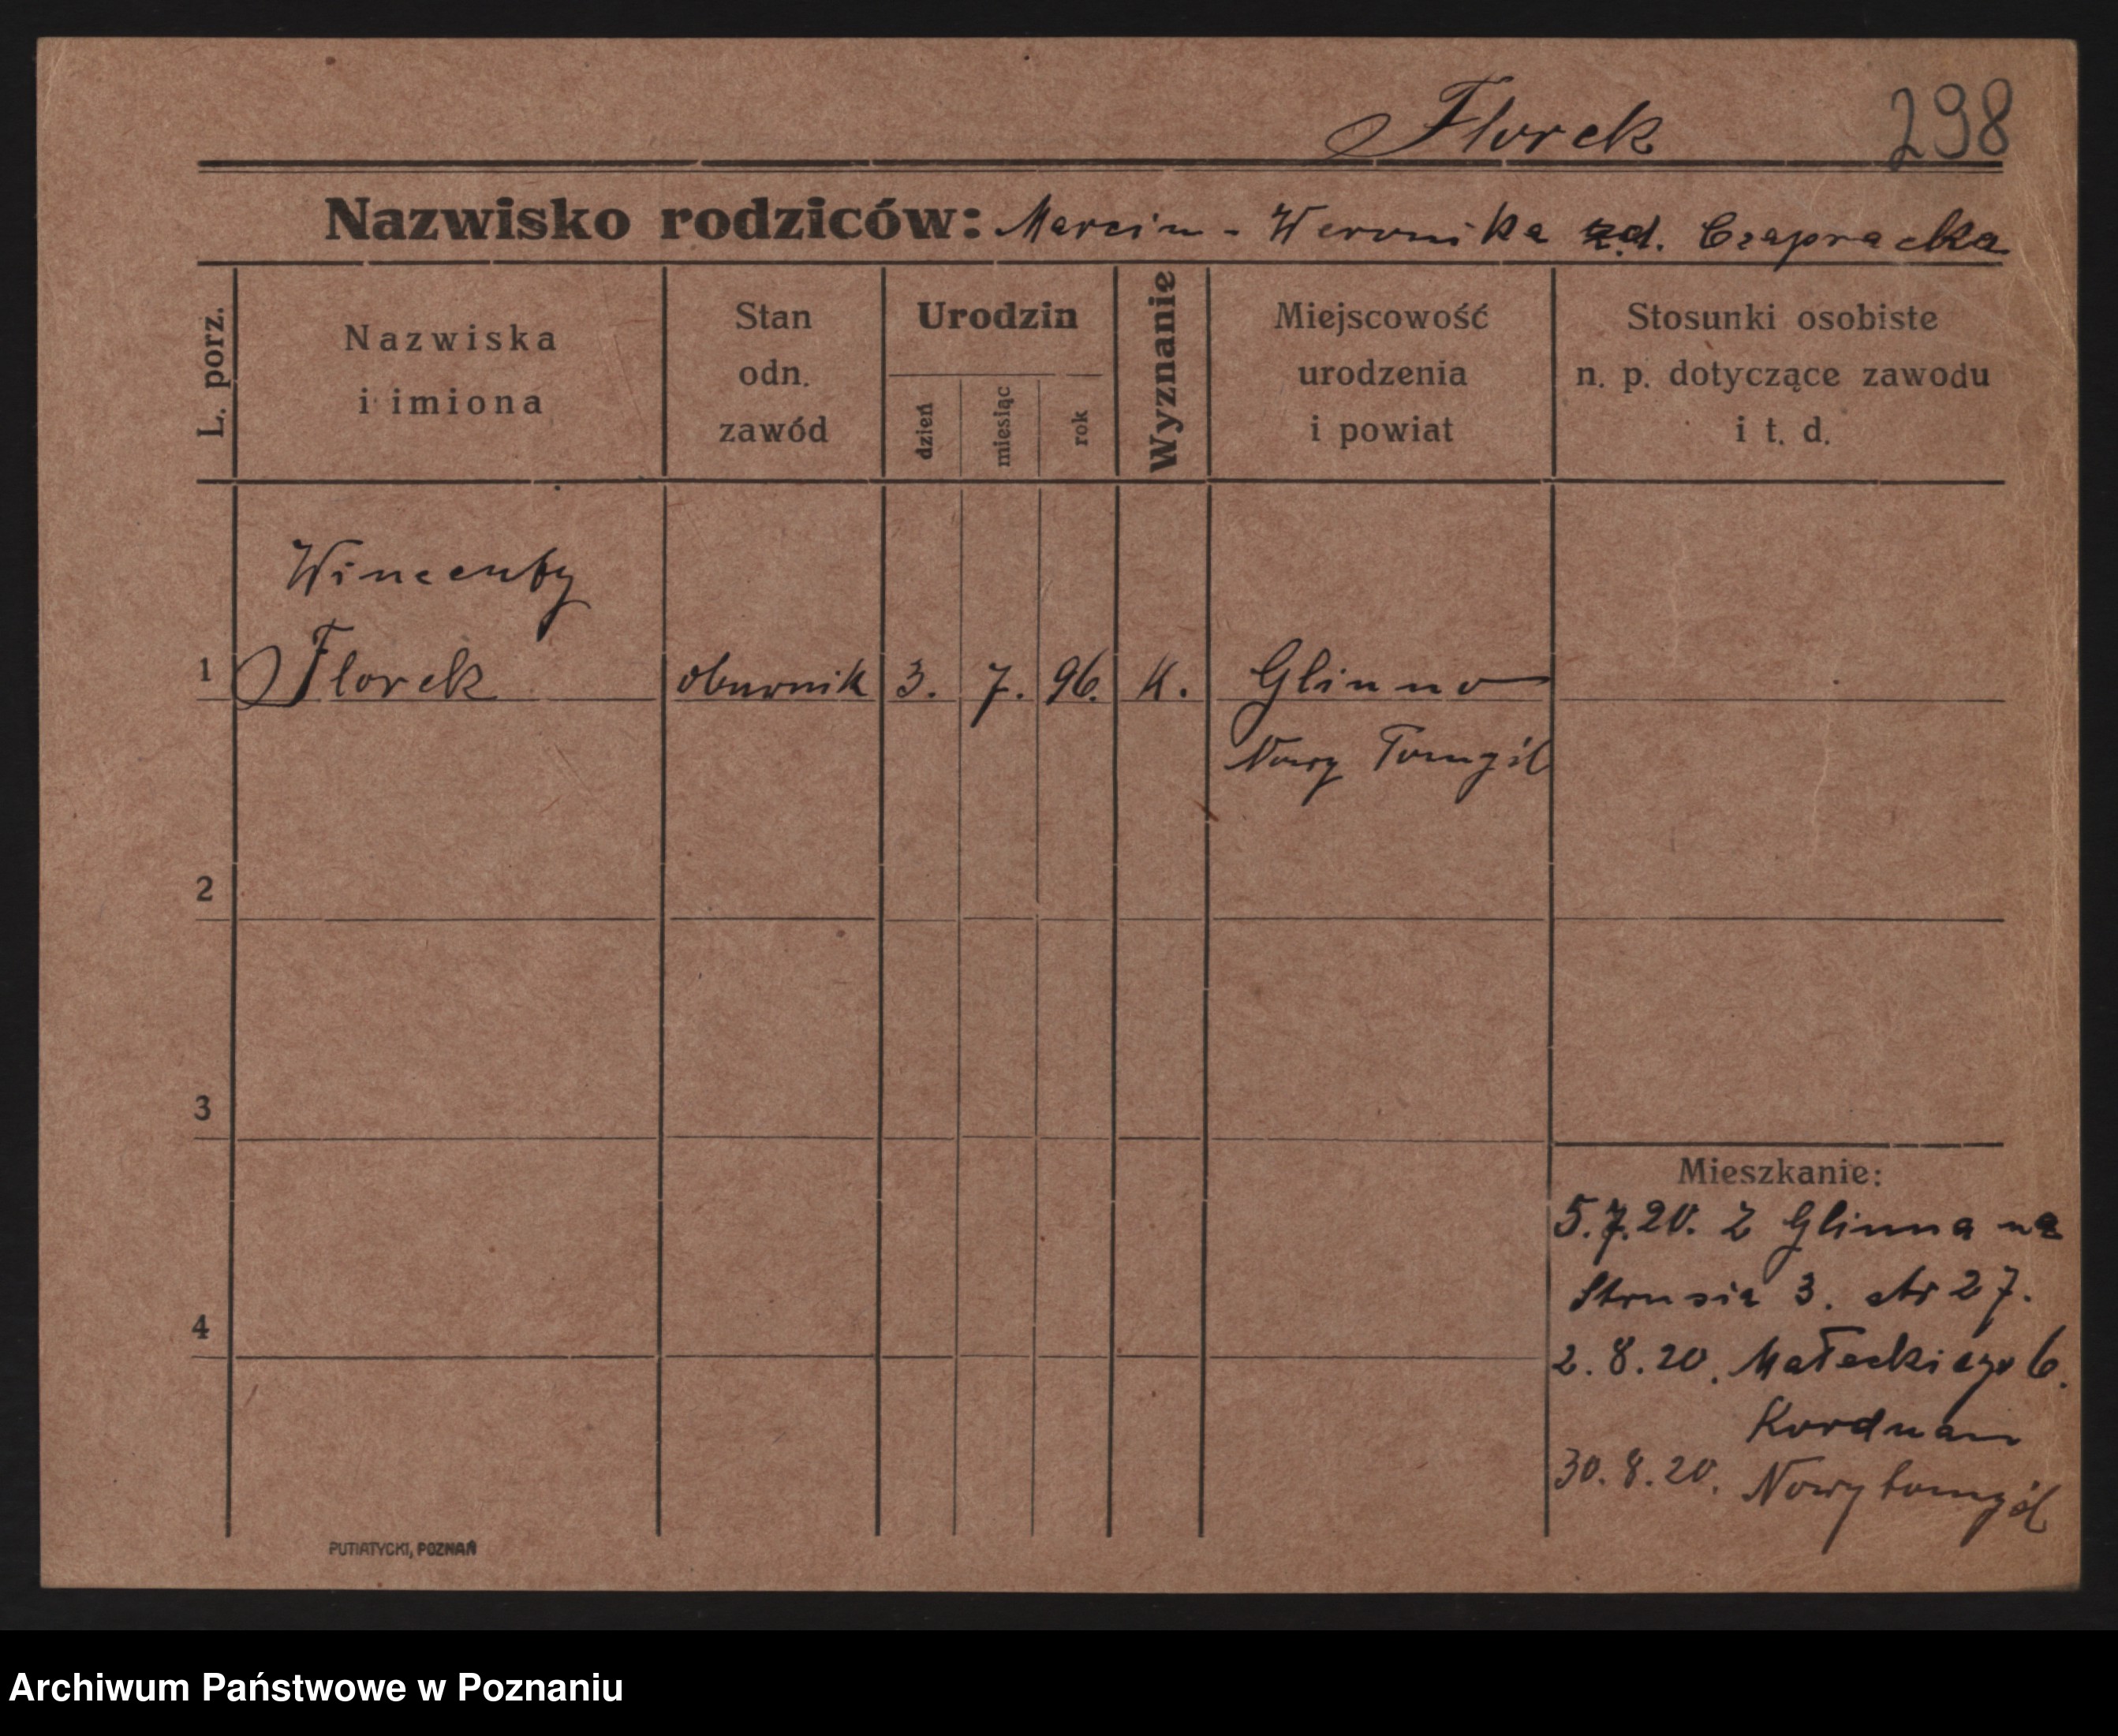 Florek 298
Nazwisko rodziców: Marcin - Weronika zd. Czapracka
L. porz.
Nazwiska
i imiona
Stan
odn.
zawód
Urodzin
dzień
miesiąc
rok
Wyznanie
Miejscowość
urodzenia
i powiat
Stosunki osobiste
n. p. dotyczące zawodu
i t. d.
Wincenty
1 Florek oburnik 3. 7. 96. K. Glinno
Nowy Tomyśl
2
3
Mieszkanie:
5.7.20. Z Glinna na
Strusia 3. 27.
4
2.8.20. Małeckiego 6.
30.8.20. Nowytomyśl
PUTIATYCKI, POZNAŃ
Archiwum Państwowe w Poznaniu